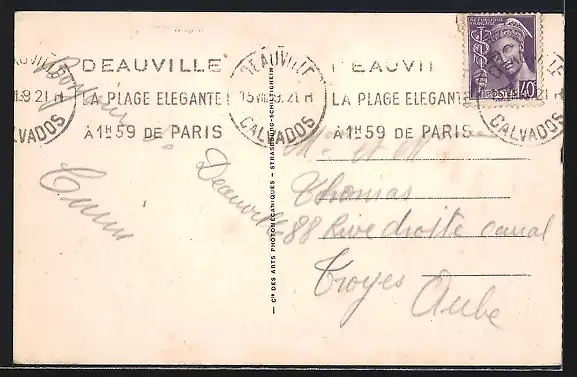 DEAUVILLE
LA PLAGE ELEGANTE
À 1H59 DE PARIS
DEAUVILLE
21 H
CALVADOS
EAUVIL
LA PLAGE ELEGANTE
À 1H59 DE PARIS
CALVADOS
REPUBLIQUE FRANÇAISE
POSTES 40c
Bonjour de Deauville
— Cie DES ARTS PHOTOMÉCANIQUES — STRASBOURG-SCHILTIGHEIM
et
Thomas
88 Rive droite canal
Troyes
Aube